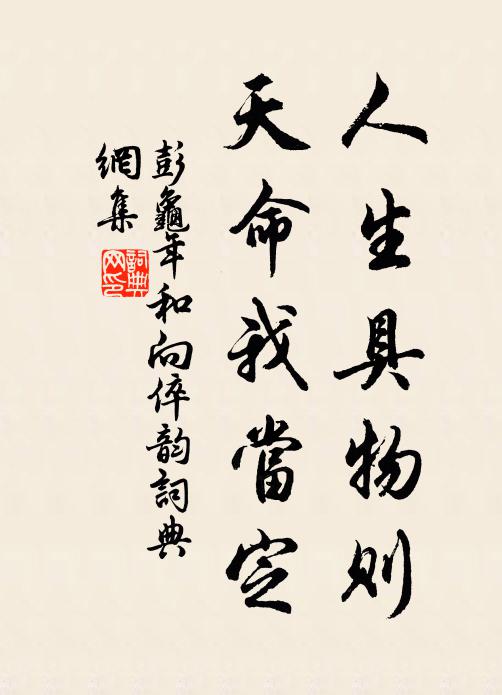 人生具物則
天命我當定
彭龜年和向倅韵詞典
網集
詞典
网印